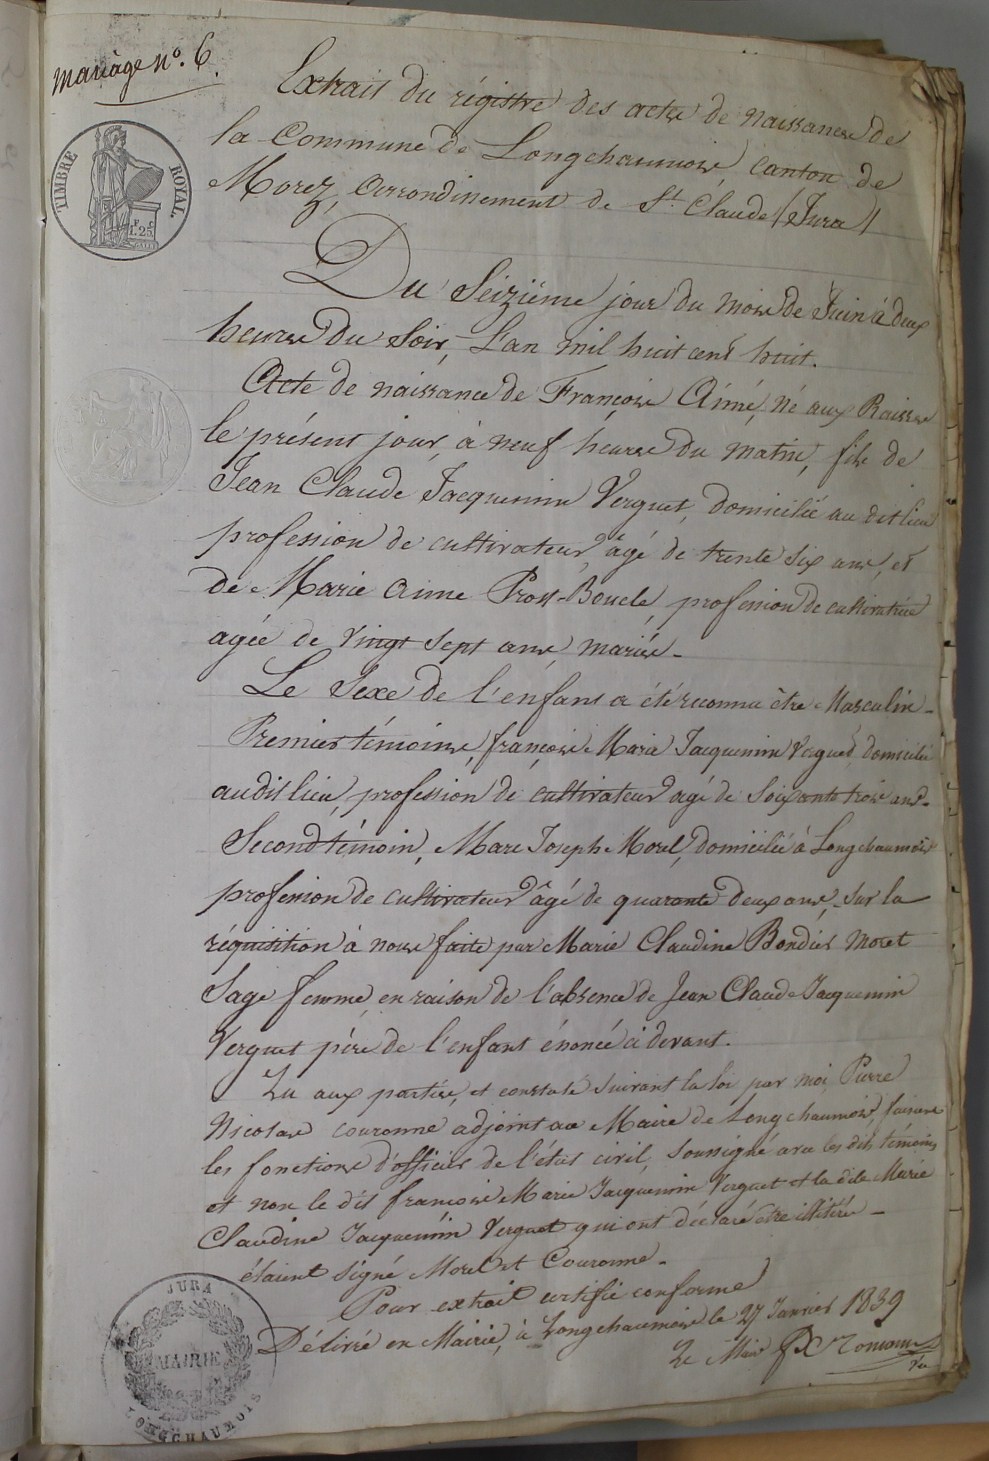 Mariage n°. 6.
TIMBRE ROYAL
Extrait du régistre des actes de naissances de
la Commune de Longchaumois, canton de
Morez, Arrondissement de St. Claude (Jura)
Du Seizième jour du mois de Juin à deux
heures du Soir, L'an mil huit cent huit.
Acte de naissance de François Aimé, né aux Raisses
le présent jour, à neuf heures du matin, fils de
Jean Claude Jacquemin Verguet, domicilié au dit lieu
profession de cultivateur, âgé de trente six ans, et
de Marie Aime Prost-Boucle, profession de cultivatrice
agée de vingt sept ans, mariés -
Le Sexe de l'enfans a été reconnu être Masculin -
Premier témoins, françois Maria Jacquemin Verguet, domicilié
audit lieu, profession de cultivateur agé de soixante trois ans -
Second témoin, Marc Joseph Morel, domicilié à Longchaumois
profession de cultivateur âgé de quarante deux ans, Sur la
réquisition à nous faite par Marie Claudine Bondier Moret
Sage femme, en raison de l'absence de Jean Claude Jacquemin
Verguet père de l'enfant énoncé ci devant.
Lu aux parties, et constaté suivant la loi, par moi, Pierre
Nicolas couronne adjoint au Maire de Longchaumois, faisant
les fonctions d'officier de l'état civil, soussigné avec les dits témoins
et non le dit francois Marie Jacquemin Verguet et la dite Marie
Claudine Jacquemin Verguet qui ont déclaré être illitéré -
étaient signé Morel et Couronne -
Pour extrait certifié conforme
Délivré en Mairie, à Longchaumois le 27 Janvier 1839
Le Maire
JURA
MAIRIE
LONGCHAUMOIS